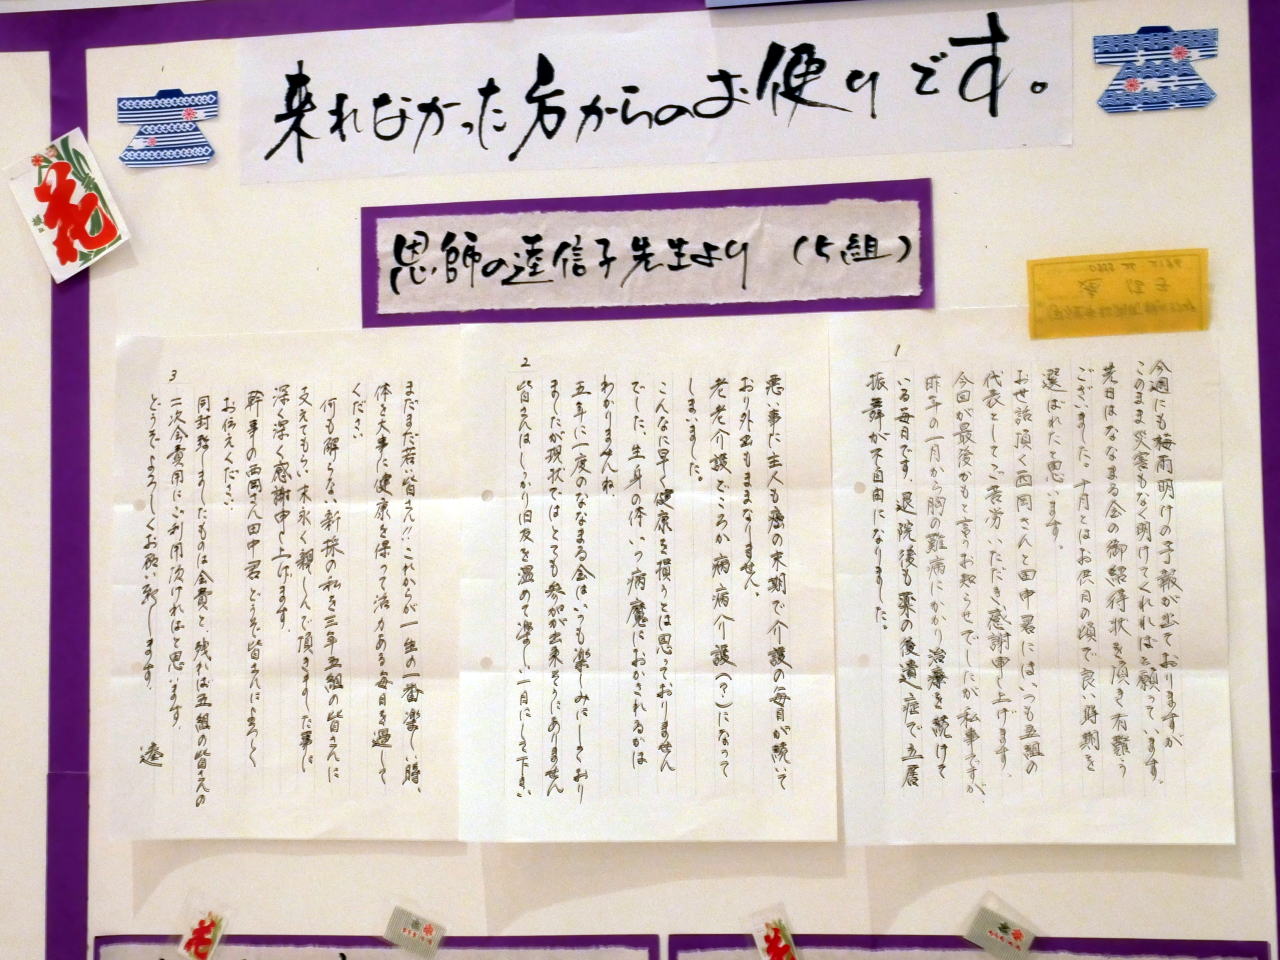 来れなかった方からのお便りです。
恩師の逵信子先生より (5組)
花
1
今週にも梅雨明けの予報が出ておりますが
このまま災害もなく明けてくれればと願っています。
先日はななまる会の御紹待状を頂き有難う
ございました。十月とはお供月の頃で良い時期を
選ばれたと思います。
お世話頂く西岡さんと田中君にはいつも五組の
代表としてご苦労いただき感謝申し上げます。
今回が最後かもと言うお知らせでしたが私事ですが、
昨年の一月から胸の難病にかかり治療を続けて
いる毎日です。退院後も薬の後遺症で立居
振舞が不自由になりました。
2
悪い事に主人も癌の末期で介護の毎日が続いて
おり外出もままなりません。
老老介護どころか病病介護(?)になって
しまいました。
こんなに早く健康を損うとは思っておりません
でした。生身の体いつ病魔におかされるかは
わかりませんね。
五年に一度のななまる会はいつも楽しみにしており
ましたが現状ではとても参加が出来そうにありません
皆さんはしっかり旧友を温めて楽しい一日にして下さい
3
まだまだ若い皆さん!!これからが一生の一番楽しい時、
体を大事に健康を保って活力ある毎日を過して
ください
何も解らない新採の私を三年五組の皆さんに
支えてもらい末永く親しんで頂きました事に
深く深く感謝申し上げます。
幹事の西岡さん田中君どうぞ皆さんによろしく
お伝えください。
同封致しましたものは会費と残れば五組の皆さんの
二次会費用にご利用頂ければと思います。
どうぞよろしくお願い致します。
逵
花
花